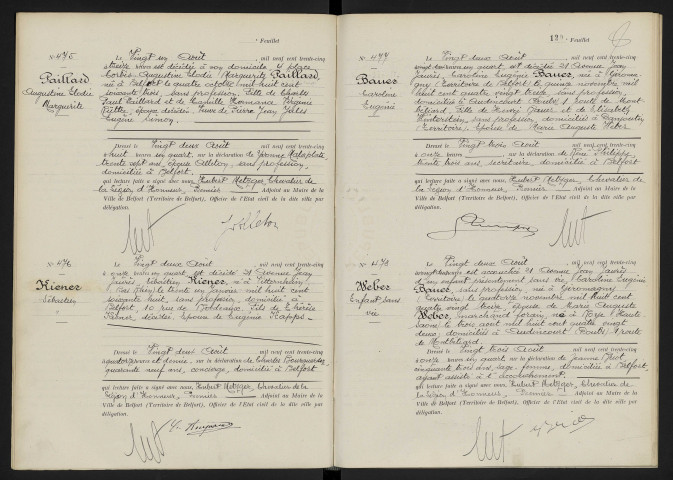 Feuillet
N° 475
Paillard
Augustine Elodie
Marguerite
Le Vingt un Août mil neuf cent trente-cinq
heures est décédée à son domicile 4 place
Corbis Augustine Elodie Marguerite Paillard
née à Belfort le quatre octobre mil huit cent
soixante trois sans profession. Fille de Charles
Paul Paillard et de Camille Hermance Virginie
époux décédés. Veuve de Jules
Eugène
Dressé le Vingt deux Août mil neuf cent trente-cinq
à huit heures un quart, sur la déclaration de Jeanne
trente sept ans, épouse Olleton, sans profession,
domiciliée à Belfort,
qui lecture faite a signé avec nous, Hubert Metzger, Chevalier de
la Légion d'Honneur, Premier Adjoint au Maire de la
Ville de Belfort (Territoire de Belfort), Officier de l'Etat civil de la dite ville par
délégation.
N° 476
Kiener
Sébastien
Le Vingt deux Août mil neuf cent trente-cinq
à onze heures un quart est décédé 21 Avenue Jean
Jaurès, Sébastien Kiener, né à
(Bas Rhin) le trente un janvier mil huit cent
soixante huit, sans profession, domicilié à
Belfort, 10 rue de Bordeaux. Fils de Thérèse
Kiener, décédée, époux de Eugénie
Dressé le Vingt deux Août mil neuf cent trente-cinq
à quatorze heures et demie, sur la déclaration de Charles
quarante neuf ans, concierge, domicilié à Belfort
qui lecture faite a signé avec nous, Hubert Metzger, Chevalier de la
Légion d'Honneur, Premier Adjoint au Maire de la
Ville de Belfort (Territoire de Belfort), Officier de l'Etat civil de la dite ville par
délégation.
Feuillet
N° 477
Bauer
Caroline
Eugénie
Le Vingt deux Août mil neuf cent trente-cinq
vingt heures un quart est décédée 21 Avenue Jean
Jaurès, Caroline Eugénie Bauer, née à Giromagny
(Territoire de Belfort) le quinze novembre mil
huit cent quatre vingt treize, sans profession,
domiciliée à Audincourt (Doubs) 1 route de Montbéliard.
Fille de Bauer et de Elisabeth
sans profession, domiciliée à
(Territoire). Epouse de Marie Auguste Weber
Dressé le Vingt trois Août mil neuf cent trente-cinq
à onze heures sur la déclaration de René Philippe
trente trois ans, secrétaire, domicilié à Belfort
qui lecture faite a signé avec nous, Hubert Metzger, Chevalier de
la Légion d'Honneur, Premier Adjoint au Maire de la
Ville de Belfort (Territoire de Belfort), Officier de l'Etat civil de la dite ville par
délégation.
N° 478
Weber
Enfant sans
vie
Le Vingt deux Août mil neuf cent trente-cinq
vingt heures est accouchée 21 Avenue Jean Jaurès
d'un enfant présentement sans vie, Caroline Eugénie
Bauer, sans profession, née à Giromagny
(Territoire) le quatorze novembre mil huit cent
quatre vingt treize, épouse de Marie Auguste
Weber, marchand forain, né à (Haute
Saône) le trois août mil huit cent quatre vingt
domiciliés à Audincourt (Doubs) 1 route
de Montbéliard.
Dressé le Vingt trois Août mil neuf cent trente-cinq
à onze heures un quart, sur la déclaration de Jeanne
cinquante trois ans, sage-femme, domiciliée à Belfort,
ayant assisté à l'accouchement,
qui lecture faite a signé avec nous, Hubert Metzger, Chevalier de
la Légion d'Honneur, Premier Adjoint au Maire de la
Ville de Belfort (Territoire de Belfort), Officier de l'Etat civil de la dite ville par
délégation.